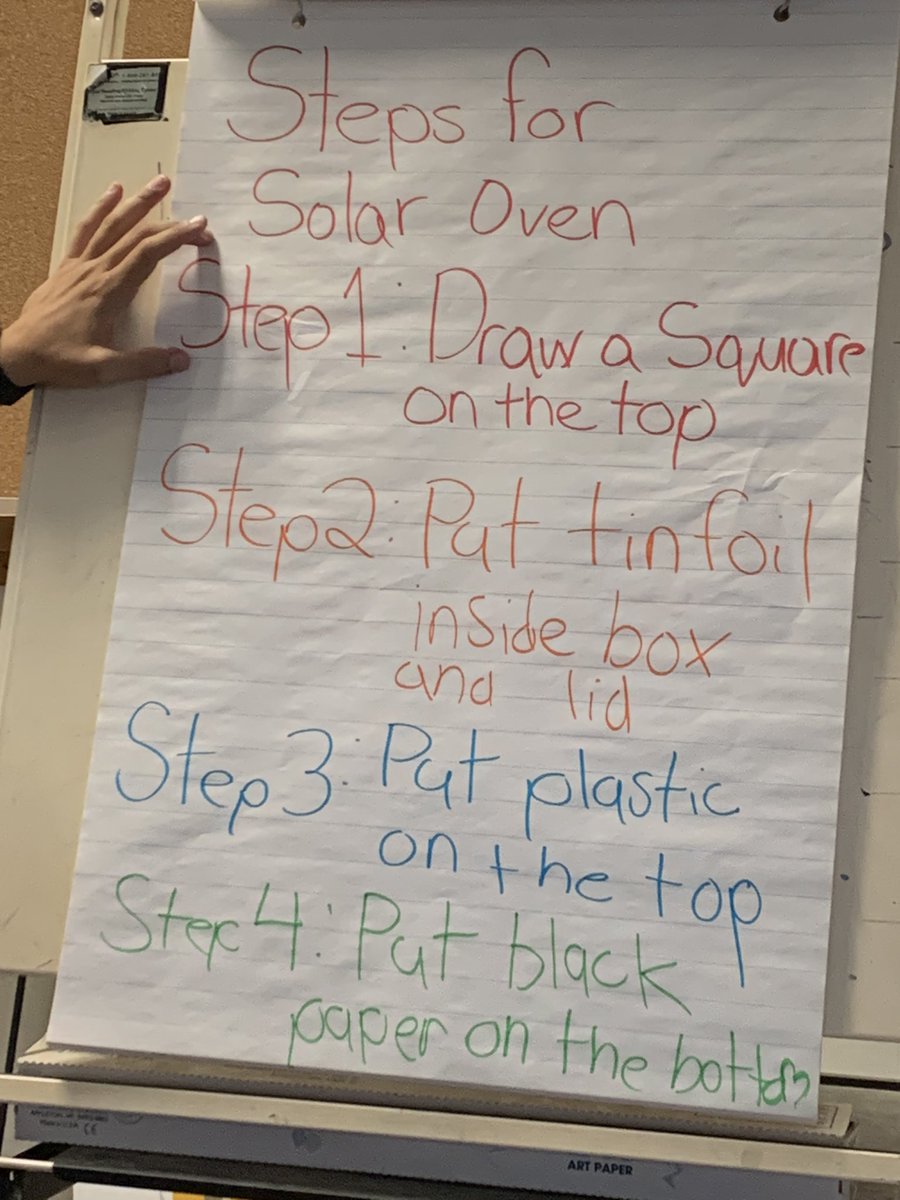 Steps for
Solar Oven
Step 1: Draw a Square
on the top
Step 2: Put tinfoil
inside box
and lid
Step 3: Put plastic
on the top
Step 4: Put black
paper on the bottom
ART PAPER